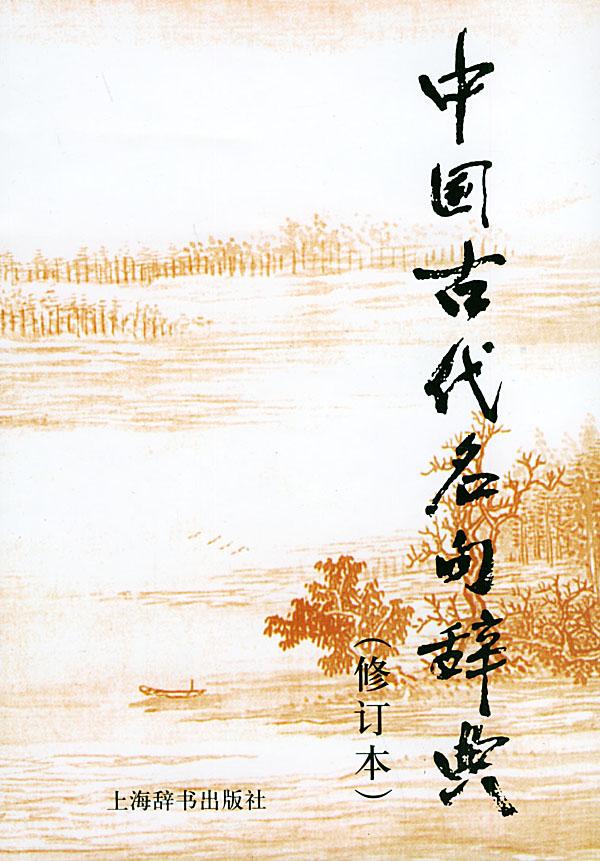 中国古代名句辞典
（修订本）
上海辞书出版社